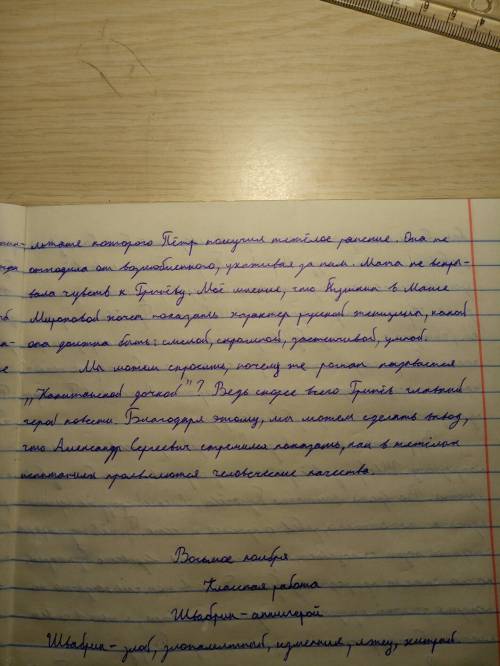 льтате которого Пётр получил тежёлое ранение. Она не
отходила от возлюбленного, ухаживая за ним. Маша не скры-
вала чувств к Гринёву. Моё мнение, что Пушкин в Маше
Мироновой хочет показать характер русской женщины, какой
она должна быть: смелой, скромной, застенчивой, умной.
Мы можем спросить, почему же роман назрвается
„Капитанской дочкой"? Ведь скорее всего Гринёв главный
герой повести. Благодаря этому, мы можем сделать вывод,
что Александр Сергеевич стремился показать, как в тежёлых
испытаниях проявляются человеческие качества.
Восьмое ноября
Классная работа
Швабрин - антигерой
Швабрин - злой, злопамятный, изменник, лжец, хитрый